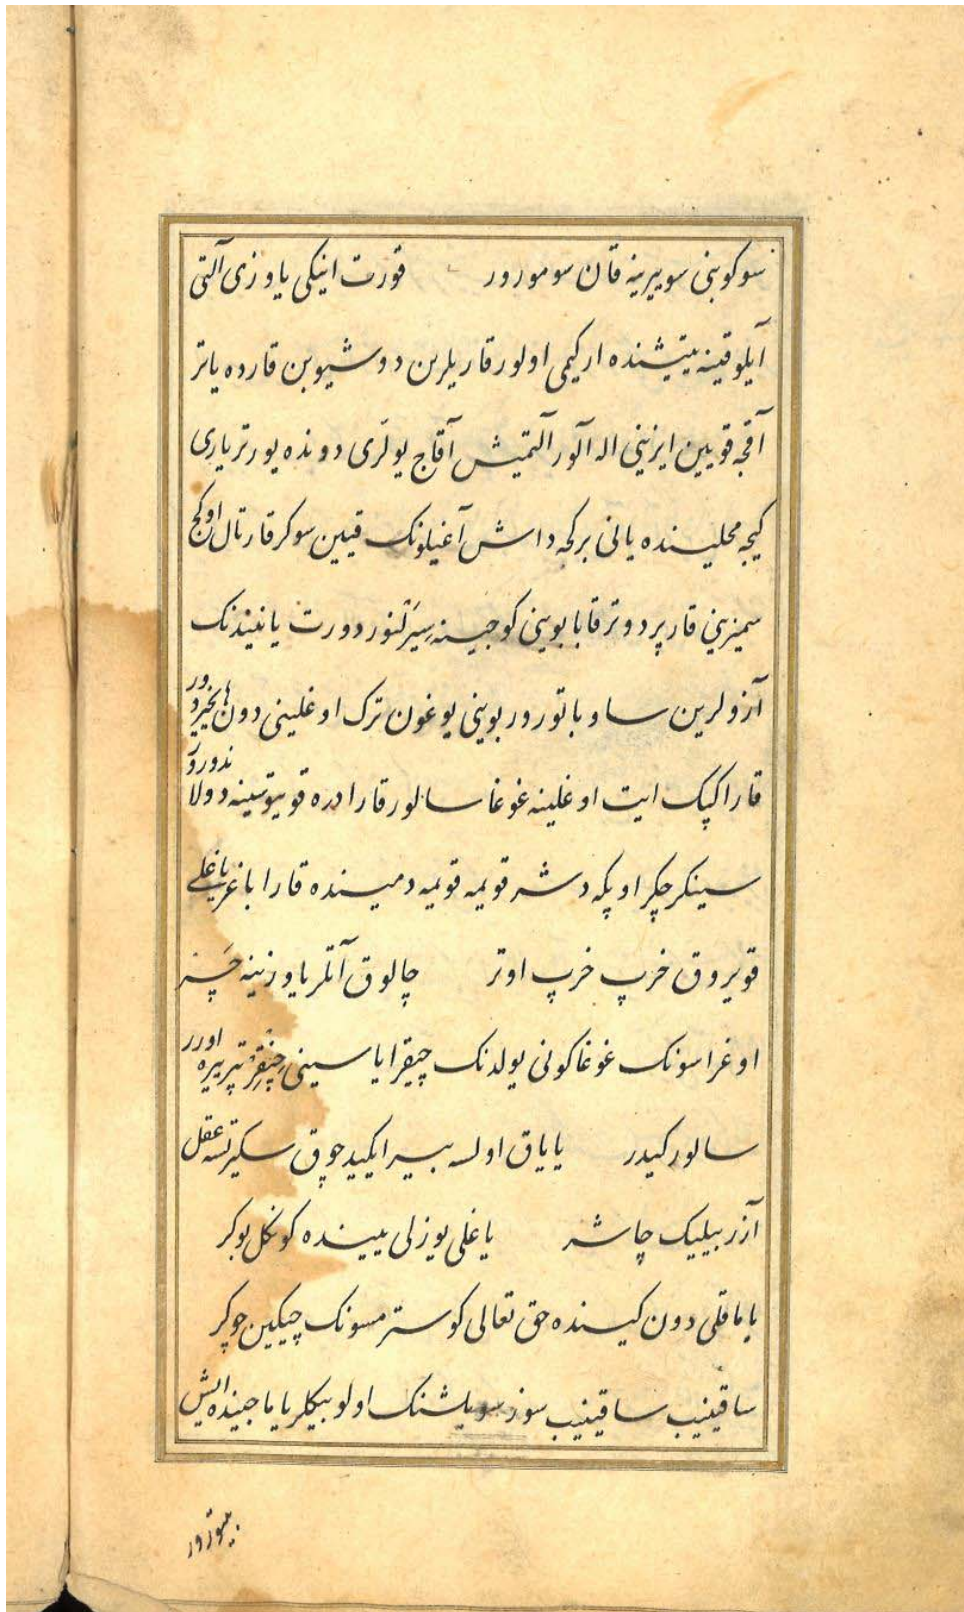 سوکوبنی سوییرینه قان سومورور قورت اینکی یاوزی آلتی
آیلوقینه یتیشنده ار کیمی اولور قاریلرین دوشیوبن قارده یاتر
آقجه قویین ایزینی اله آلور آلتمیش آقاج یولری دونده یورتر یاری
کیجه محلینده یالنی برکجه داش آغیلونک قیین سوکر قارتال اوکج
سمیزینی قارپر دوتر قابا بوینی کوجینه سیرتنور دورت یانیندنک
آزولرین ساو باتورور بوینی یوغون ترک اوغلینی دون
قارا کپک ایت اوغلینه غوغا سالور قارا دره قویتوسینه دولا
سینکر جکر اوپکه دشر قویمه قویمه دمینده قارا باغر یاغلی
قویروق خرپ خرپ اوتر چالوق آتلر یاوزینه
اوغراسونک غوغا کونی یولدنک چیقر ایاسینی اورر
سالور کیدر یایاق اولسه بیر ایکید چوق سکیرتسه عقل
آزر بیلیک چاشر یاغلی یوزلی یینده کونکل بوکر
یاماقلی دون کیسنده حق تعالی کوسترمسونک چیکین چوکر
ساقینیب ساقینیب سوز سویلشنک اولو بیکلر یایاجینده ایش
بیوزور